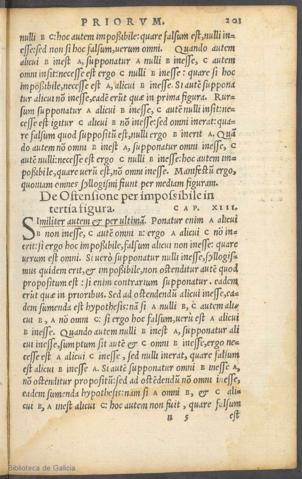 PRIORVM. 201
nulli B C: hoc autem impoßibile: quare falsum est, nulli in-
esse: sed non si hoc falsum, uerum omni. Quando autem
alicui B inest A, supponatur A nulli B inesse, C autem
omni insit: necesse est ergo C nulli B inesse: quare si hoc
impoßibile, necesse est A, alicui B inesse. Si autē supponа
tur alicui nō inesse, eadē erūt quæ in prima figura. Rur-
sum supponatur A alicui B inesse, C autē nulli insit: ne-
cesse est igitur C alicui B nō inesse: sed omni inerat: qua-
re falsum quod suppositū est, nulli ergo B inerit A. Quā
do autem nō omni B inest A, supponatur omni inesse, C
autē nulli: necesse est ergo C nulli B inesse: hoc autem im-
poßibile, quare uerū est, nō omni inesse. Manifestū ergo,
quoniam omnes syllogismi fiunt per mediam figuram.
De Ostensione per impossibile in
tertia figura. CAP. XIII.
Similiter autem & per ultimā. Ponatur enim A alicui
B non inesse, C autē omni B: ergo A alicui C nō in-
erit: si ergo hoc impoßibile, falsum alicui non inesse: quare
uerum est omni. Si uerò supponatur nulli inesse, syllogis-
mus quidem erit, & impoßibile, non ostenditur autē quod
propositum est: si enim contrarium supponatur, eadem
erūt quæ in prioribus. Sed ad ostendendū alicui inesse, ea-
dem sumenda est hypothesis: nā si A nulli B, C autem ali-
cui B, A nō omni C: si ergo hoc falsum, uerū est A alicui
B inesse. Quando autem nulli B inest A, supponatur ali
cui inesse, sumptum sit autē & C omni B inesse, ergo ne-
cesse est A alicui C inesse, sed nulli inerat, quare falsum
est alicui B inesse A. Si autē supponatur omni B inesse A,
nō ostenditur propositū: sed ad ostēdendū nō omni inesse,
eadem sumenda hypothesis: nam si A omni B, & C ali-
cui B, A inest alicui C: hoc autem non fuit, quare falsum
B 5 est
Biblioteca de Galicia